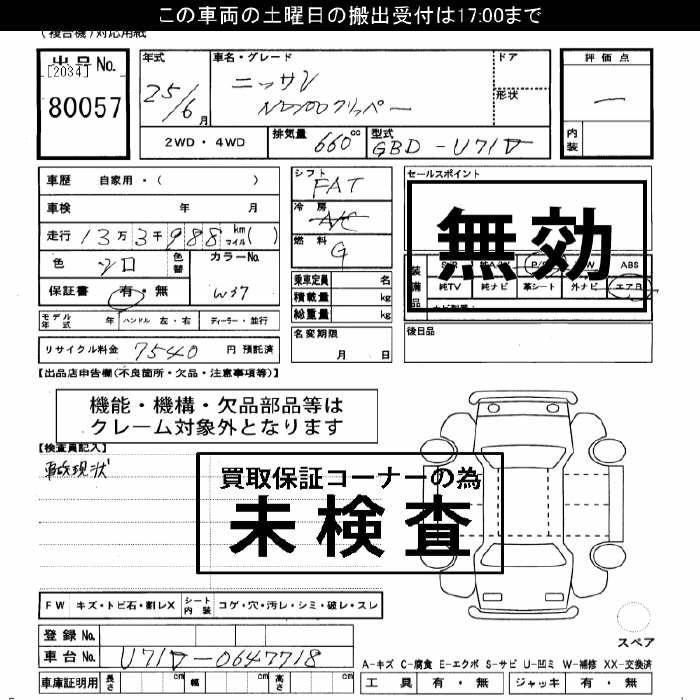 この車両の土曜日の搬出受付は17:00まで
(複合機)対応用紙
出品No. [2034] 80057
年式 25/6月
車名・グレード ニッサン NV100クリッパー
ドア
形状
評価点 一
内装
2WD・4WD 排気量 660cc 型式 GBD-U71V
車歴 自家用・( )
車検 年 月
走行 13万3千988 km マイル( )
色 シロ 色替 カラーNo. W37
保証書 有・無
シフト FAT
冷房 A/C
燃料 G
乗車定員 名
積載量 kg
総重量 kg
セールスポイント
無効
装備品 P/S W ABS
純TV 純ナビ 革シート 外ナビ エアB
モデル年式 年 ハンドル 左・右 ディーラー・並行
名変期限 月 日
後日品
リサイクル料金 7540 円 預託済
【出品店申告欄(不良箇所・欠品・注意事項等)】
機能・機構・欠品部品等は
クレーム対象外となります
【検査員記入】
事故現状
買取保証コーナーの為
未検査
FW キズ・トビ石・割レX シート内装 コゲ・穴・汚レ・シミ・破レ・スレ
スペア
登録No.
車台No. U71V-0647718
車庫証明用 長さ cm 幅 cm 高さ cm
A-キズ C-腐食 E-エクボ S-サビ U-凹ミ W-補修 XX-交換済
工具 有・無 ジャッキ 有・無